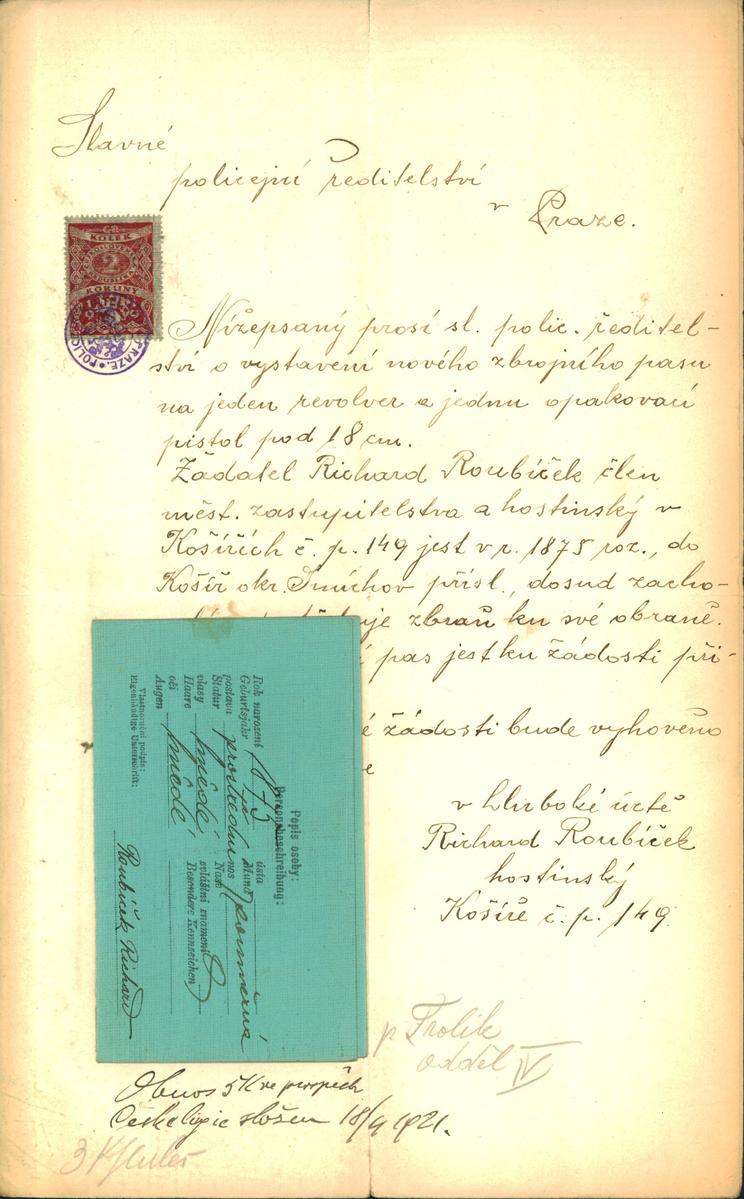 Slavné
policejní ředitelství
v Praze.
KOLEK
2
KORUNY
Nížepsaný prosí sl. polic. ředitel-
ství o vystavení nového zbrojního pasu
na jeden revolver a jednu opakovací
pistol pod 18 cm.
Žadatel Richard Roubíček člen
měst. zastupitelstva a hostinský v
Košířích č. p. 149 jest v r. 1875 roz., do
Košíř okr. Smíchov přísl., dosud zacho-
zbraň ku své obraně.
pas jest ku žádosti při-
žádosti bude vyhověno
v hluboké úctě
Richard Roubíček
hostinský
Košíře č. p. 149.
Popis osoby:
Personsbeschreibung:
Rok narození
Geburtsjahr 1875
ústa
Mund
postava
Statur prostřední
nos
Nase
vlasy
Haare hnědé
zvláštní znamení
Besondere Kennzeichen
oči
Augen hnědé
Vlastnoruční podpis:
Eigenhändige Unterschrift:
Roubíček Richard
p Frolík
odděl IV
Obnos 5 K ve prospěch
České ligie složen 18/4 1921.